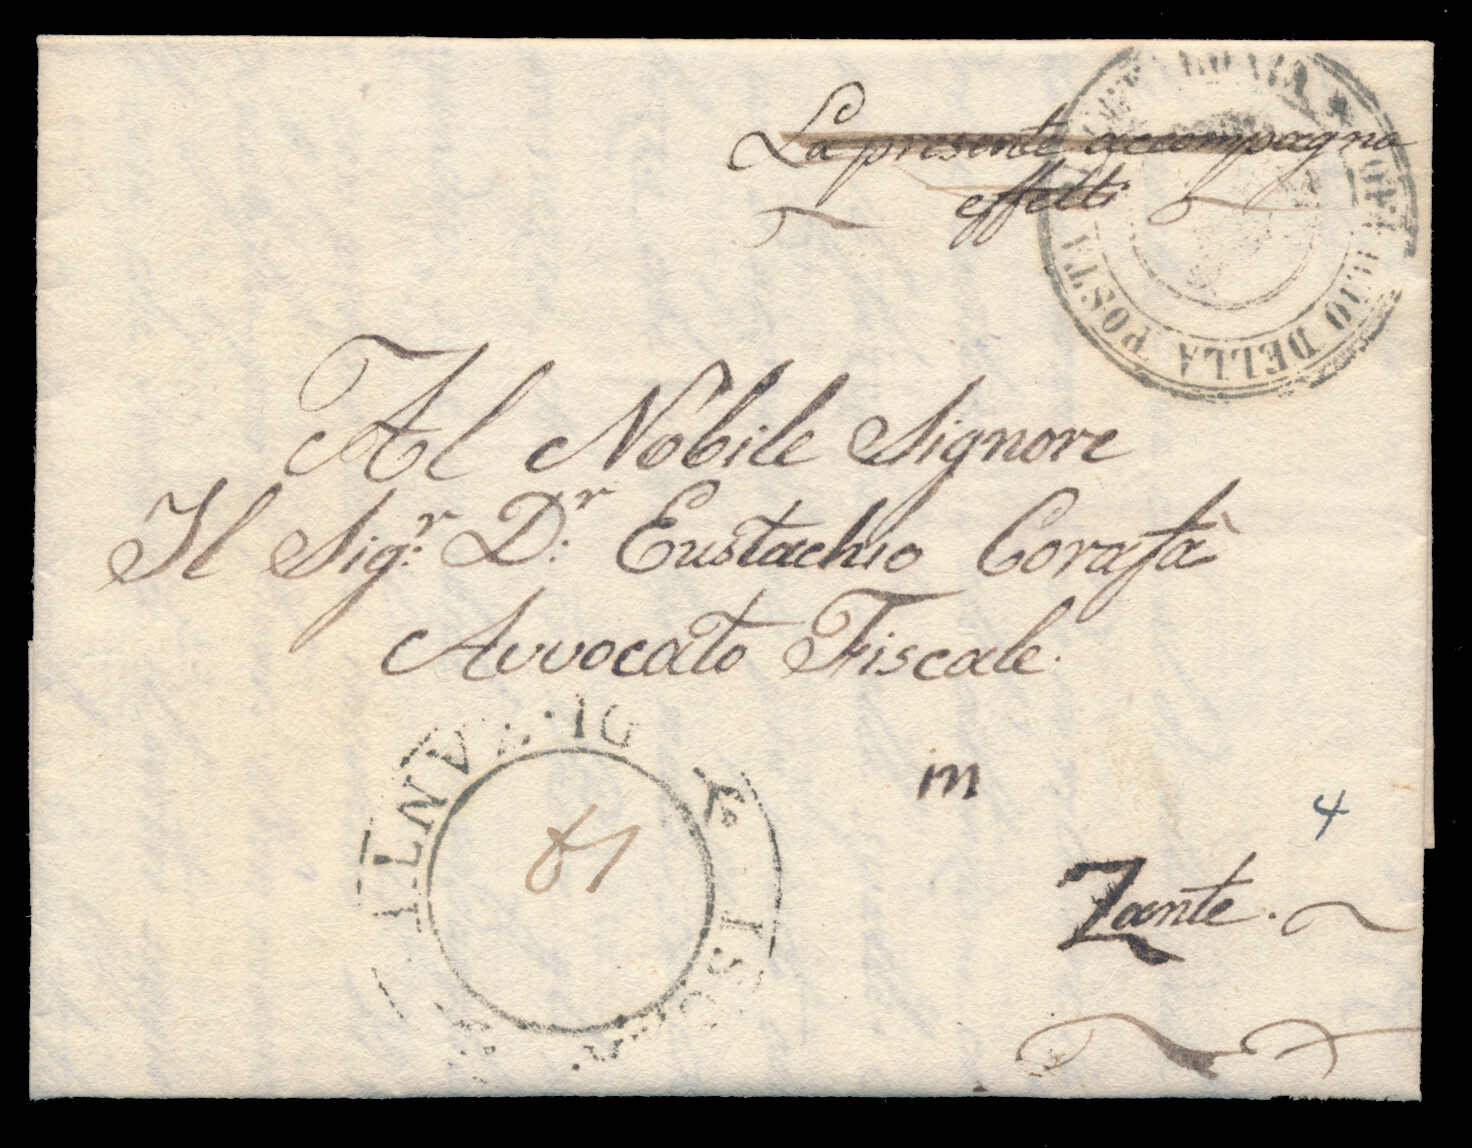 La presente accompagna
effetti
DELLA POSTA
Al Nobile Signore
Il Sigr. Dr. Eustachio Corafà
Avvocato Fiscale.
in
4
Zante.
DI ZANTE